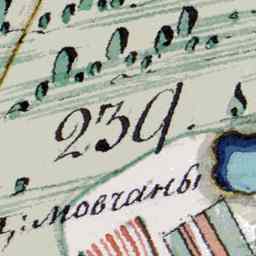 239.
ц: мовчаны